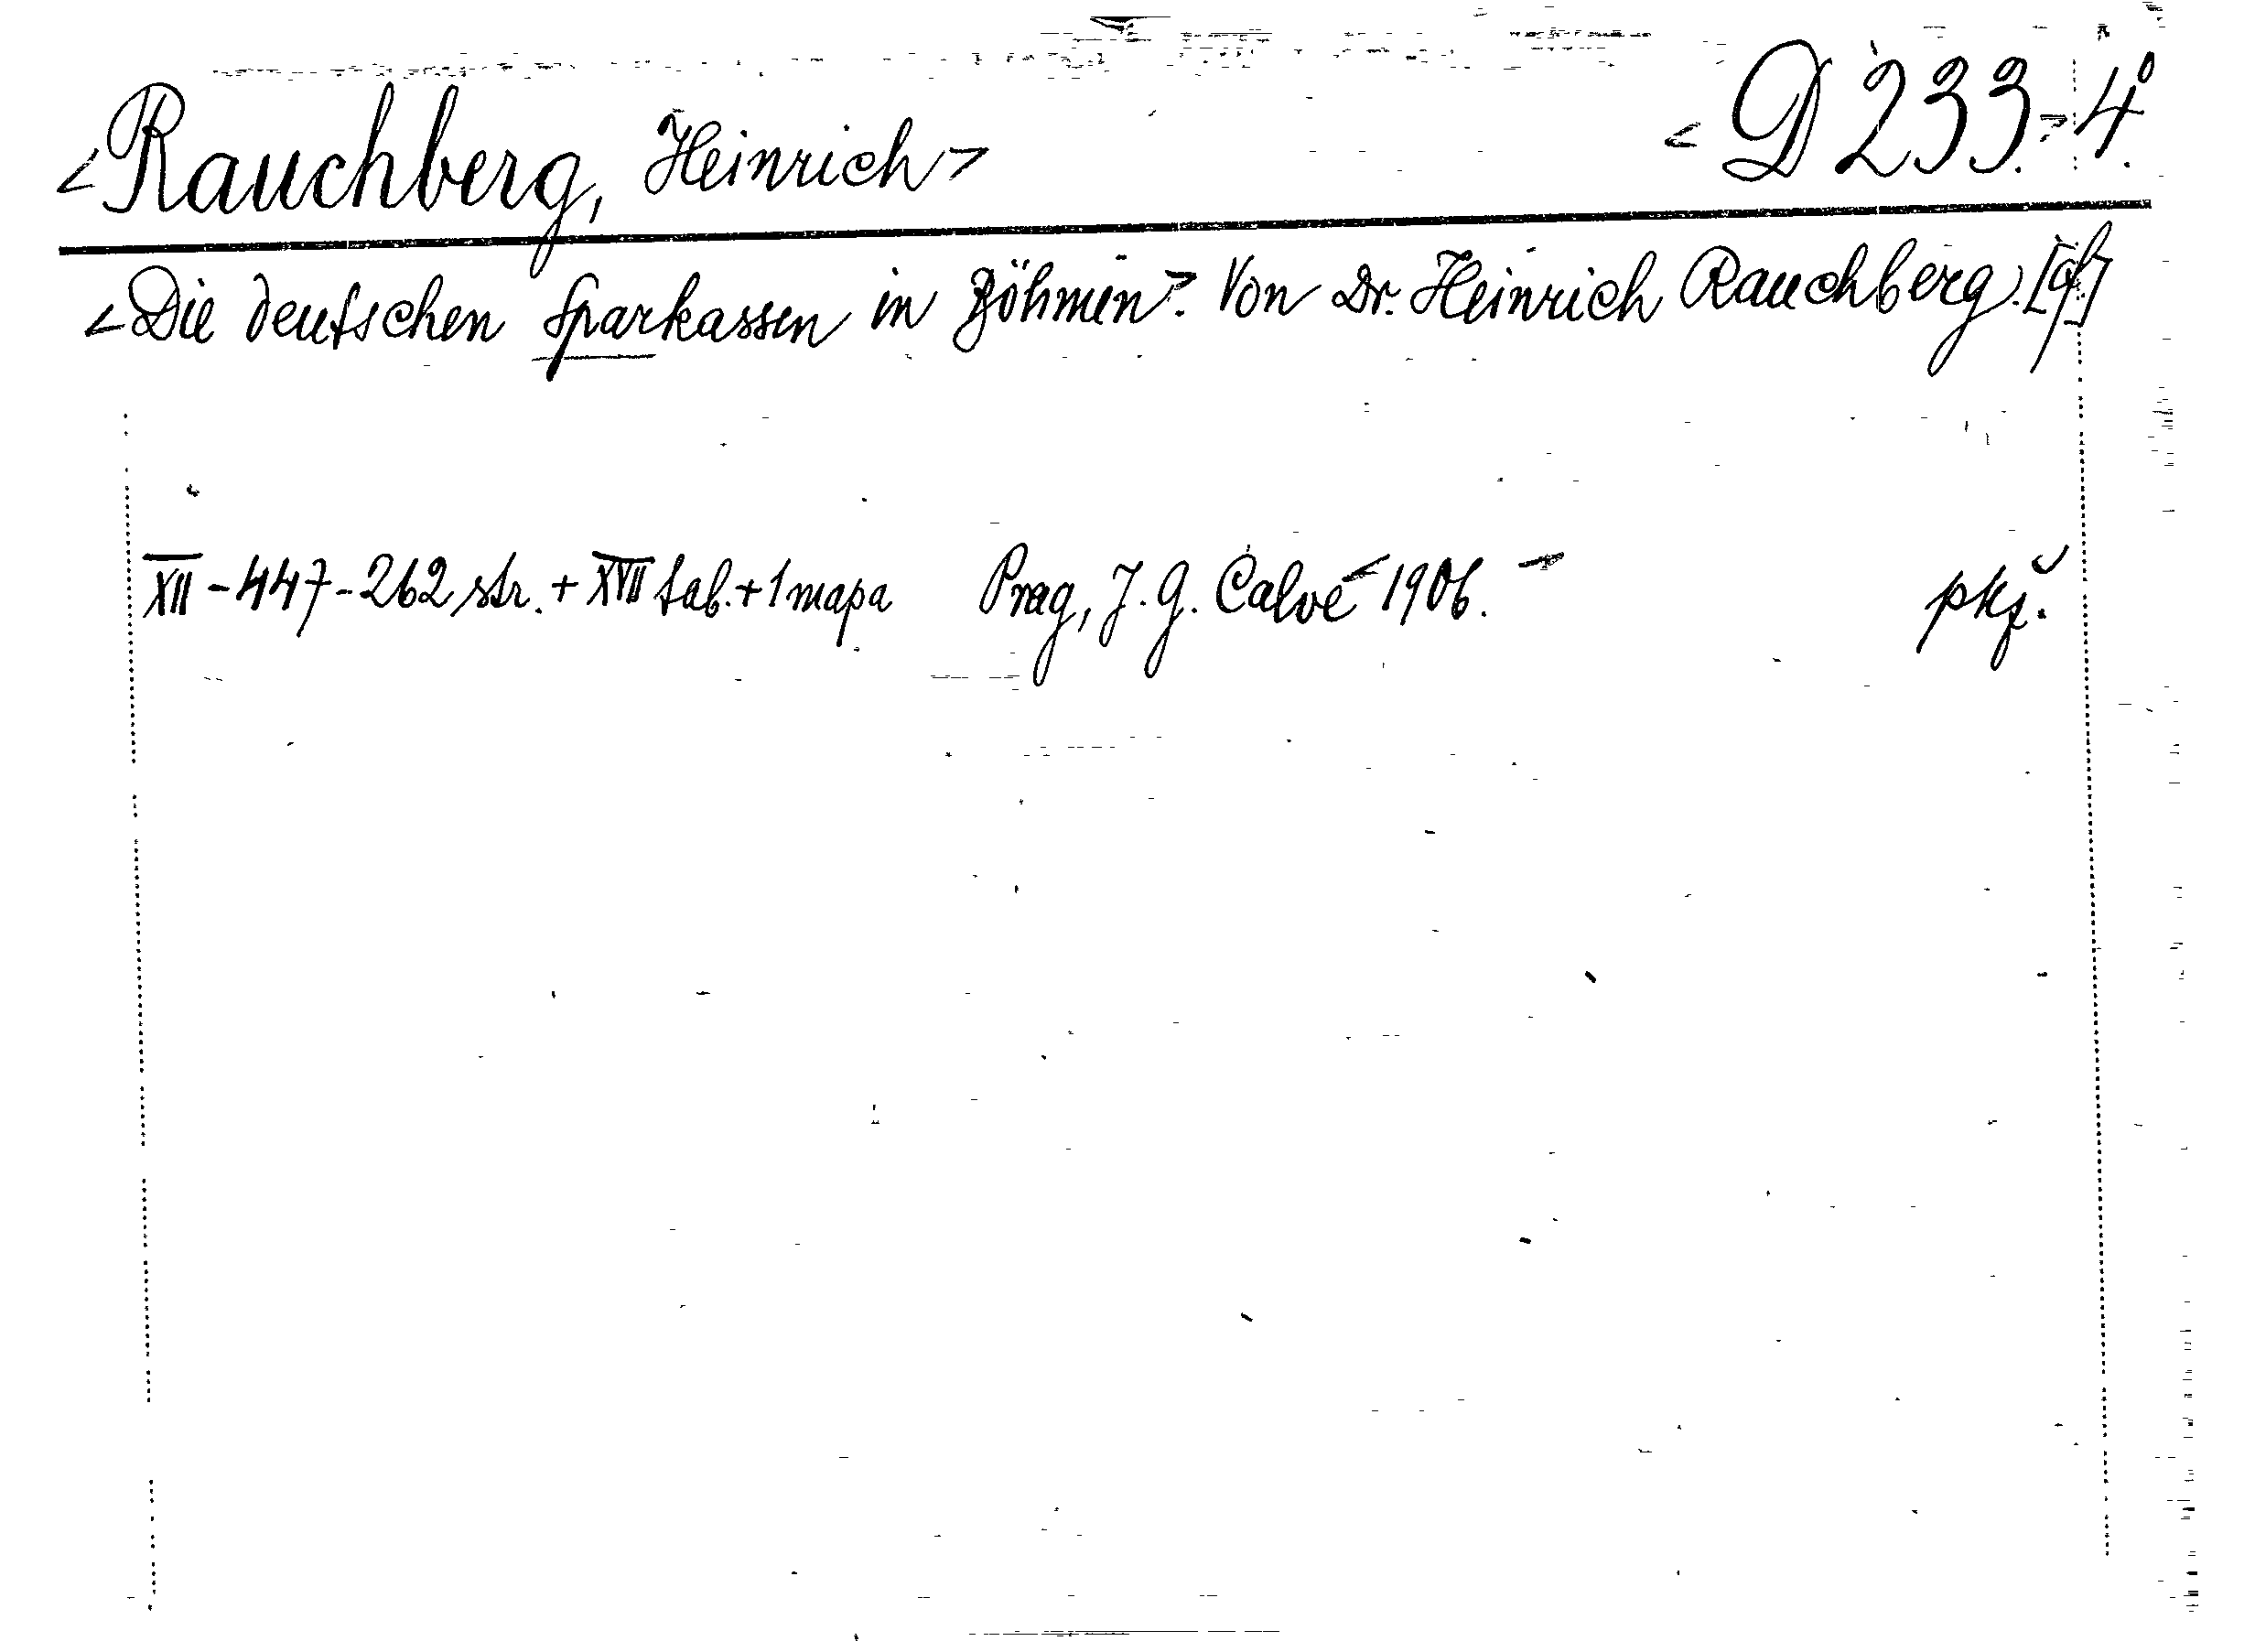 <Rauchberg, Heinrich> <D 233.> 4°.
<Die deutschen Sparkassen in Böhmen>. Von Dr. Heinrich Rauchberg.
XII - 447 - 262 str. + XVII tab. + 1 mapa Prag, J. G. Calve <1906.> pkž.